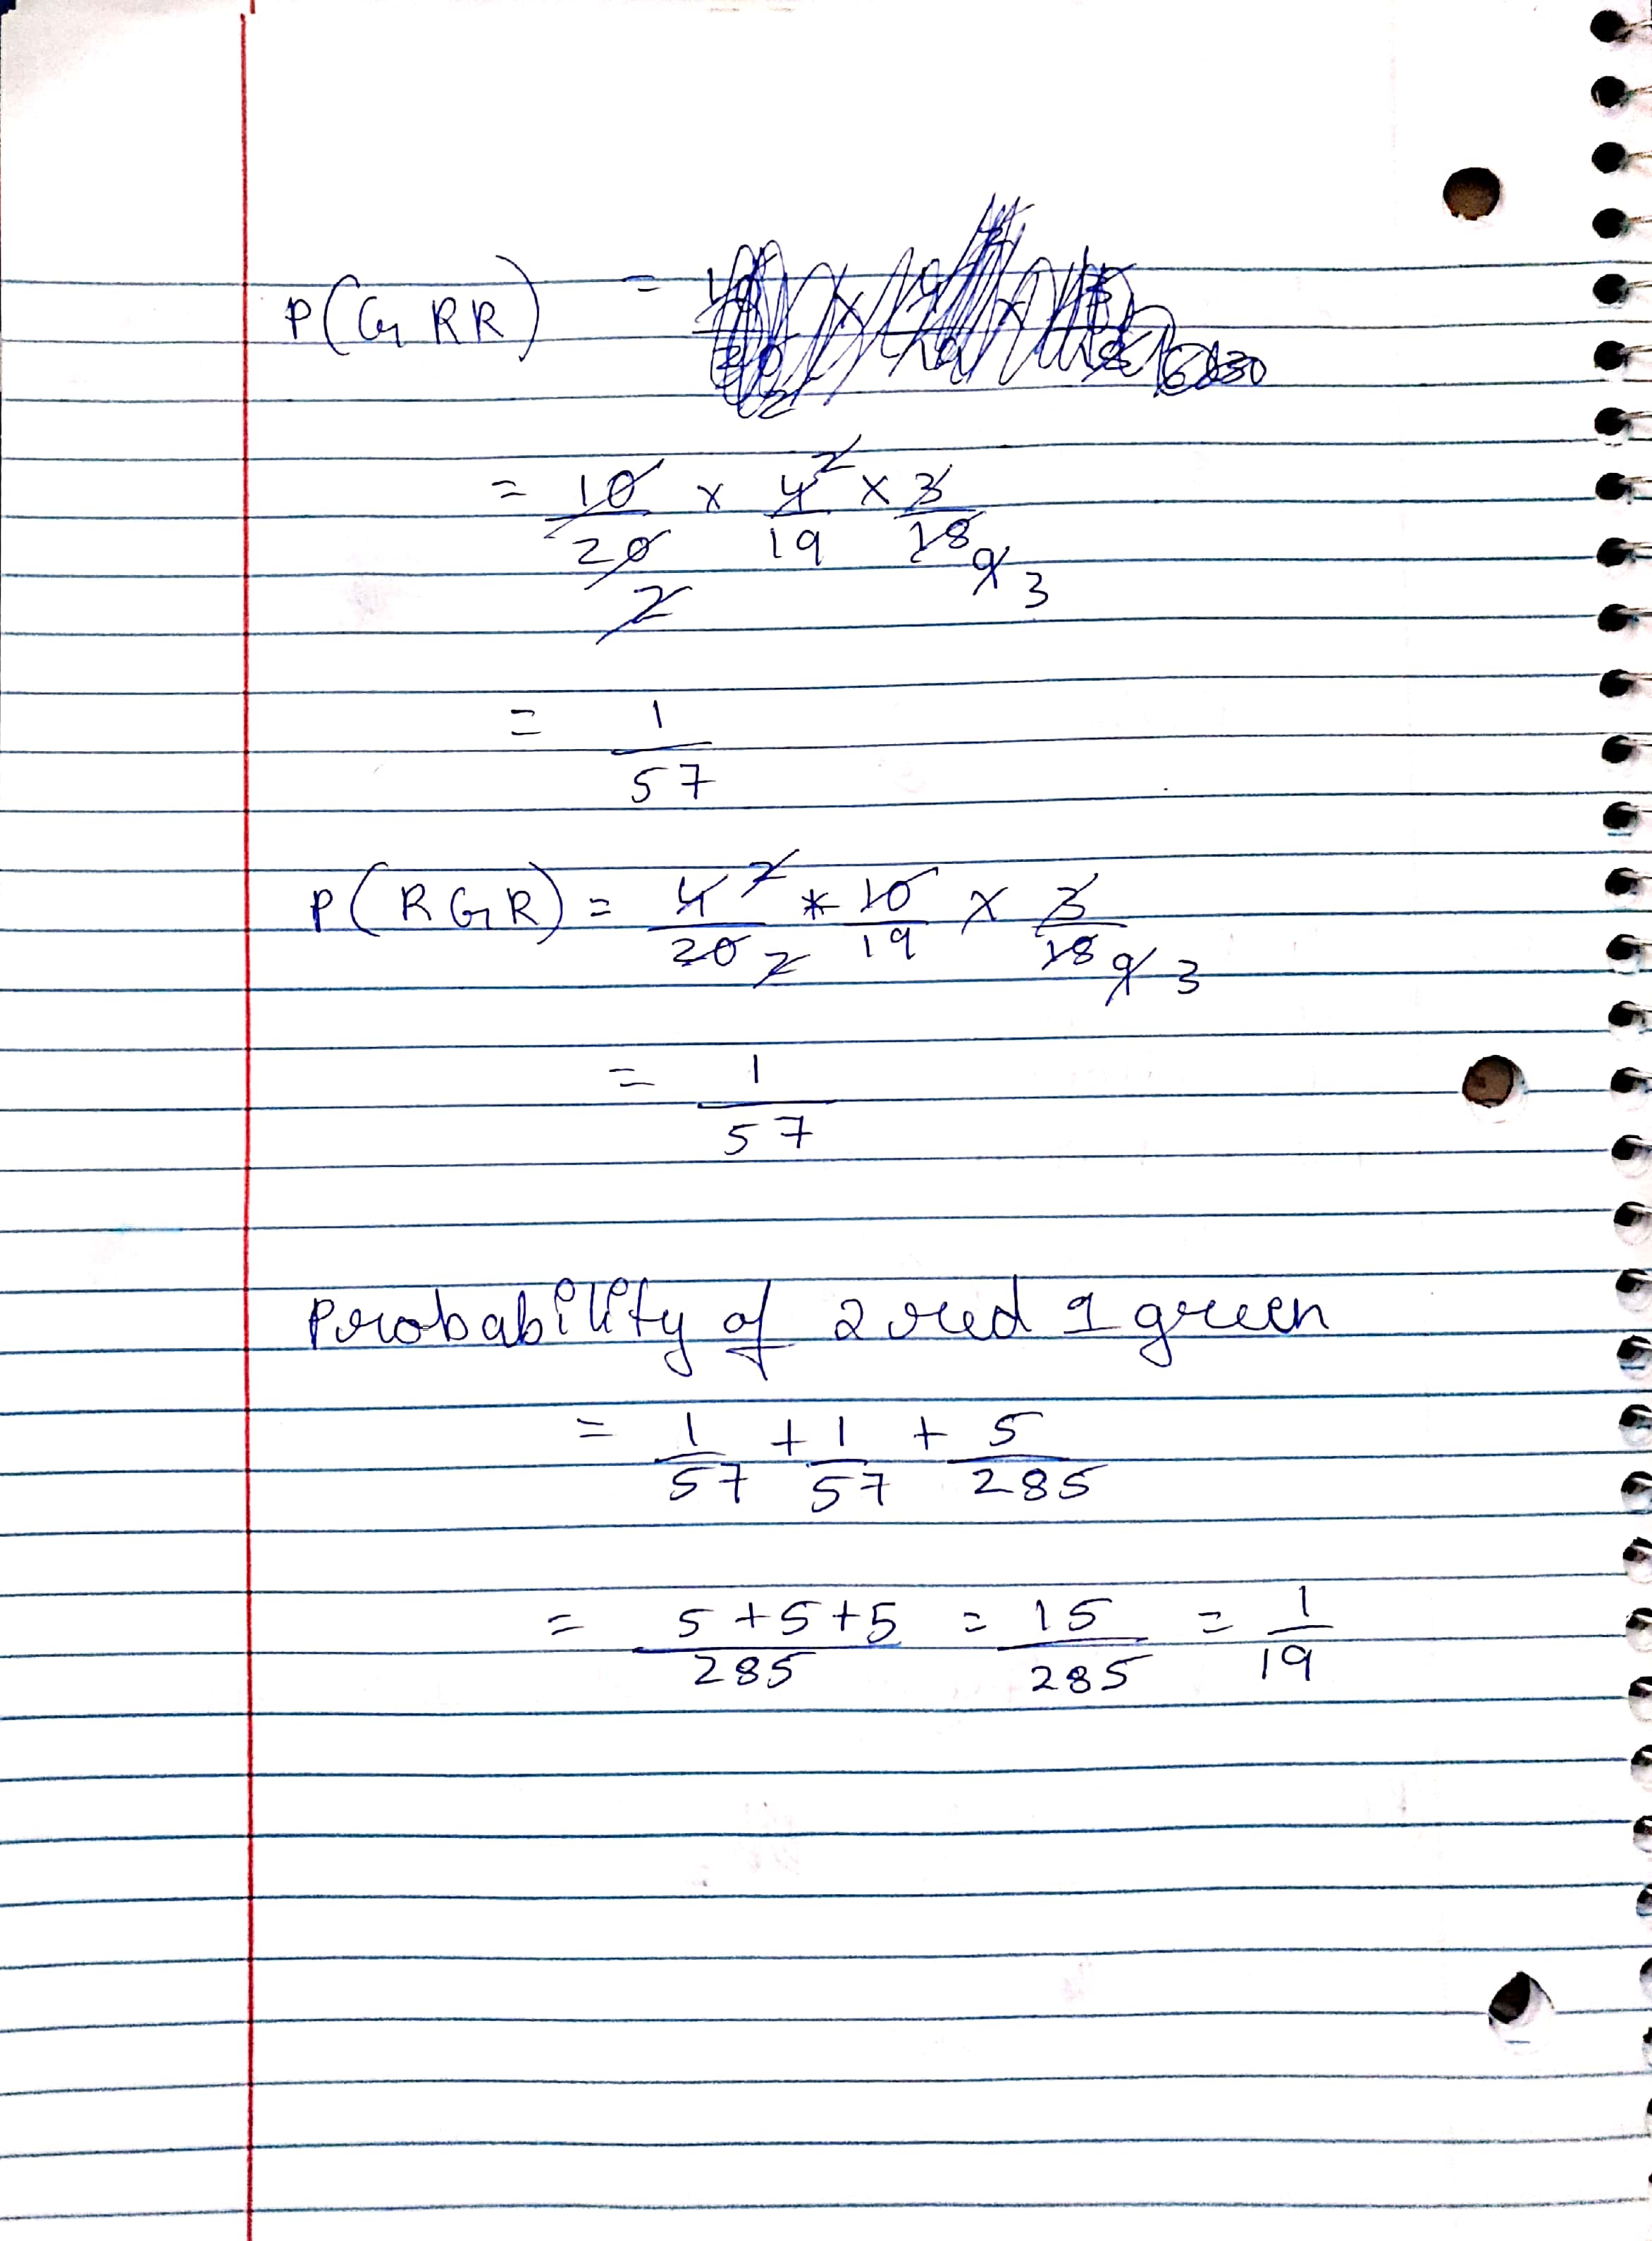 P(GRR) =
= 10/20 2 × 4 2/19 × 3/18 9 3
= 1/57
P(RGR) = 4 2/20 2 * 10/19 × 3/18 9 3
= 1/57
Probability of 2 red 1 green
= 1/57 + 1/57 + 5/285
= 5+5+5/285 = 15/285 = 1/19